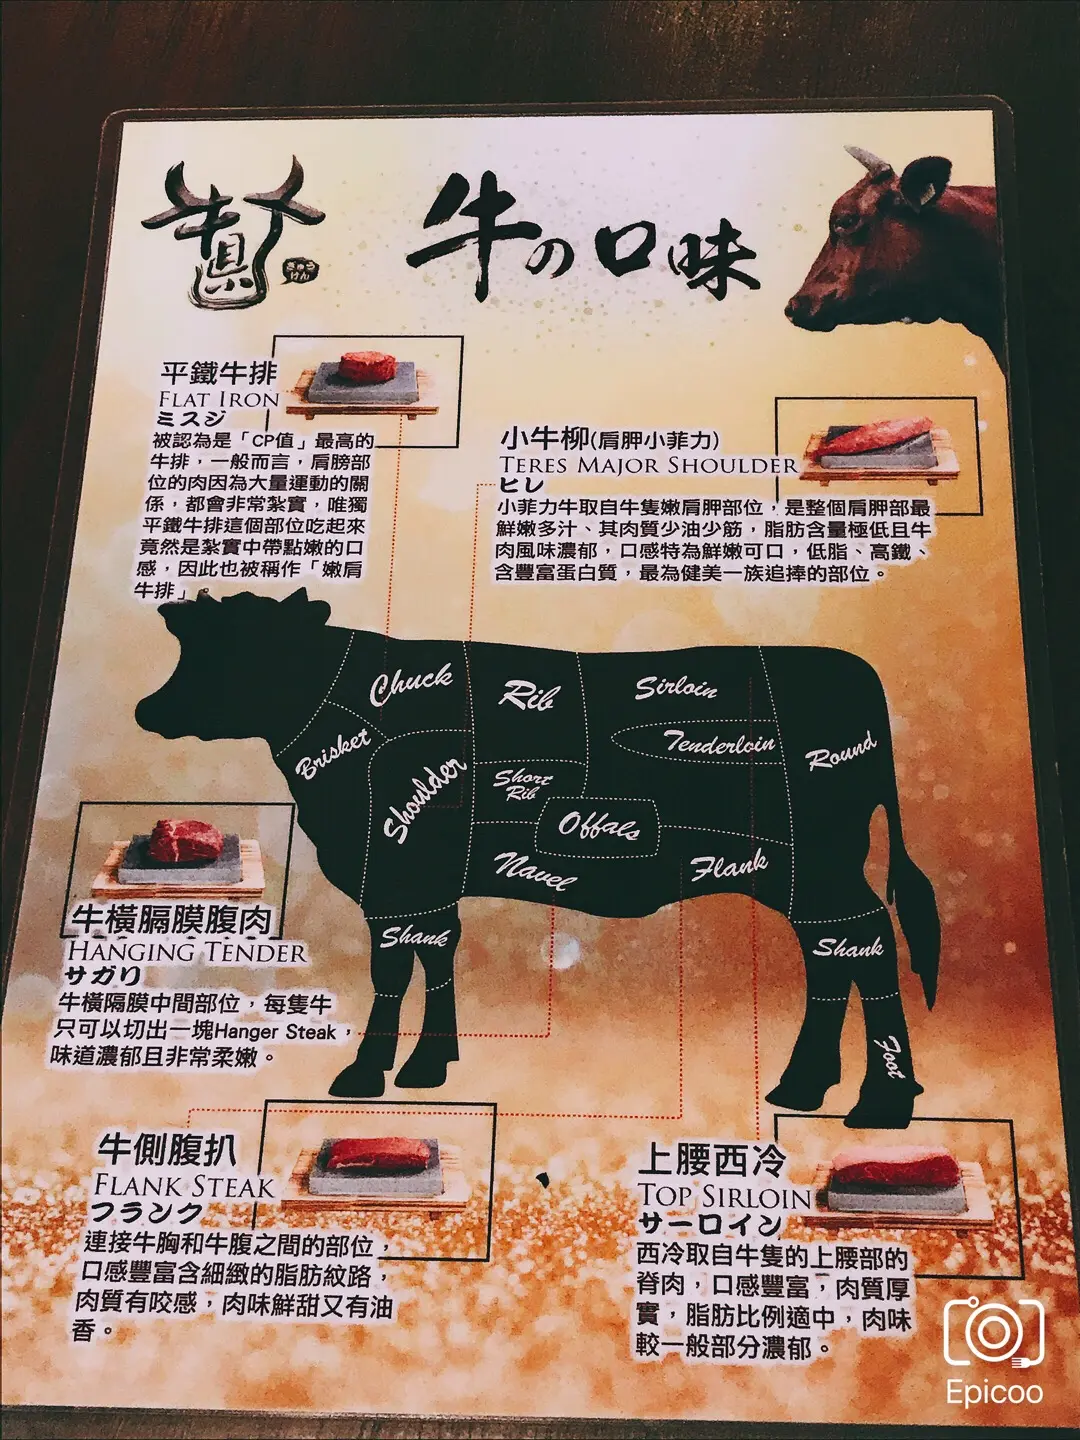 牛の口味
平鐵牛排
FLAT IRON
ミスジ
被認為是「CP值」最高的
牛排，一般而言，肩膀部
位的肉因為大量運動的關
係，都會非常紮實，唯獨
平鐵牛排這個部位吃起來
竟然是紮實中帶點嫩的口
感，因此也被稱作「嫩肩
牛排」。
小牛柳(肩胛小菲力)
TERES MAJOR SHOULDER
ヒレ
小菲力牛取自牛隻嫩肩胛部位，是整個肩胛部最
鮮嫩多汁、其肉質少油少筋，脂肪含量極低且牛
肉風味濃郁，口感特為鮮嫩可口，低脂、高鐵、
含豐富蛋白質，最為健美一族追捧的部位。
Chuck
Rib
Sirloin
Tenderloin
Round
Brisket
Shoulder
Short
Rib
Offals
Navel
Flank
Shank
Shank
Foot
牛橫膈膜腹肉
HANGING TENDER
サガり
牛橫隔膜中間部位，每隻牛
只可以切出一塊Hanger Steak，
味道濃郁且非常柔嫩。
牛側腹扒
FLANK STEAK
フランク
連接牛胸和牛腹之間的部位，
口感豐富含細緻的脂肪紋路，
肉質有咬感，肉味鮮甜又有油
香。
上腰西冷
TOP SIRLOIN
サーロイン
西冷取自牛隻的上腰部的
脊肉，口感豐富，肉質厚
實，脂肪比例適中，肉味
較一般部分濃郁。
Epicoo